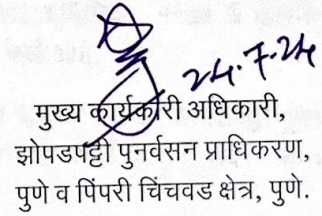 24.7.24
मुख्य कार्यकारी अधिकारी,
झोपडपट्टी पुनर्वसन प्राधिकरण,
पुणे व पिंपरी चिंचवड क्षेत्र, पुणे.